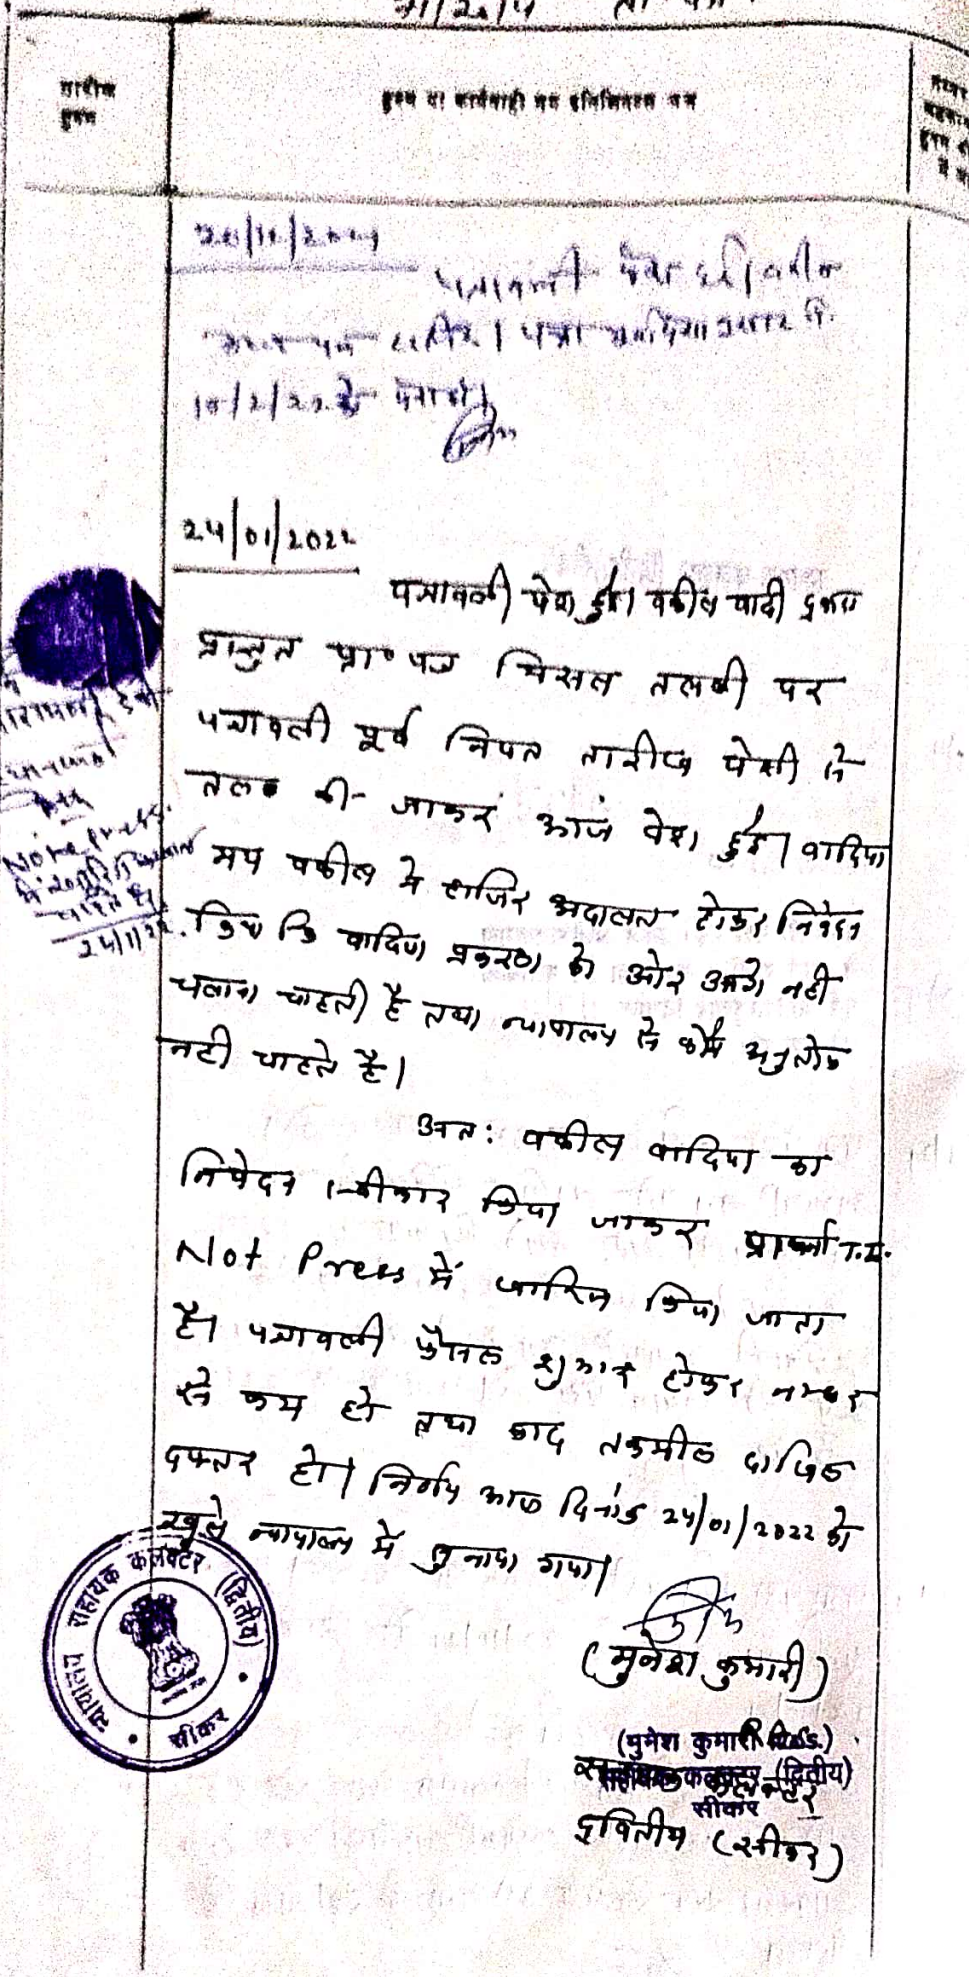 तारीख
हुक्म
हुक्म या कार्यवाही मय इनिशियल्स जज
नम्बर
हुक्म
पत्रावली पेश हुई। वकील
हाजिर। पत्रा
10/2/22 को पेश हो।
24/01/2022
पत्रावली पेश हुई। वकील वादी द्वारा
प्रस्तुत प्रा० पत्र मिसल तलबी पर
पत्रावली पूर्व नियत तारीख पेशी से
तलब की जाकर आज पेश हुई। वादिया
मय वकील ने हाजिर अदालत होकर निवेदन
किया कि वादिया प्रकरण को ओर आगे नही
चलाना चाहती है तथा न्यायालय से कोई अनुतोष
नही चाहते है।
अतः वकील वादिया का
निवेदन स्वीकार किया जाकर प्रार्थना
Not Press में खारिज किया जाता
है। पत्रावली फैसल शुमार होकर नम्बर
से कम हो तथा बाद तकमील दाखिल
दफ्तर हो। निर्णय आज दिनांक 24/01/2022 को
खुले न्यायालय में सुनाया गया।
देवी
Note press
में
चाहते है
24/1/22
न्यायालय सहायक कलक्टर (द्वितीय)
सीकर
(मुनेश कुमारी)
(मुनेश कुमारी)
सहायक कलक्टर (द्वितीय)
सीकर
सहायक कलक्टर
द्वितीय (सीकर)